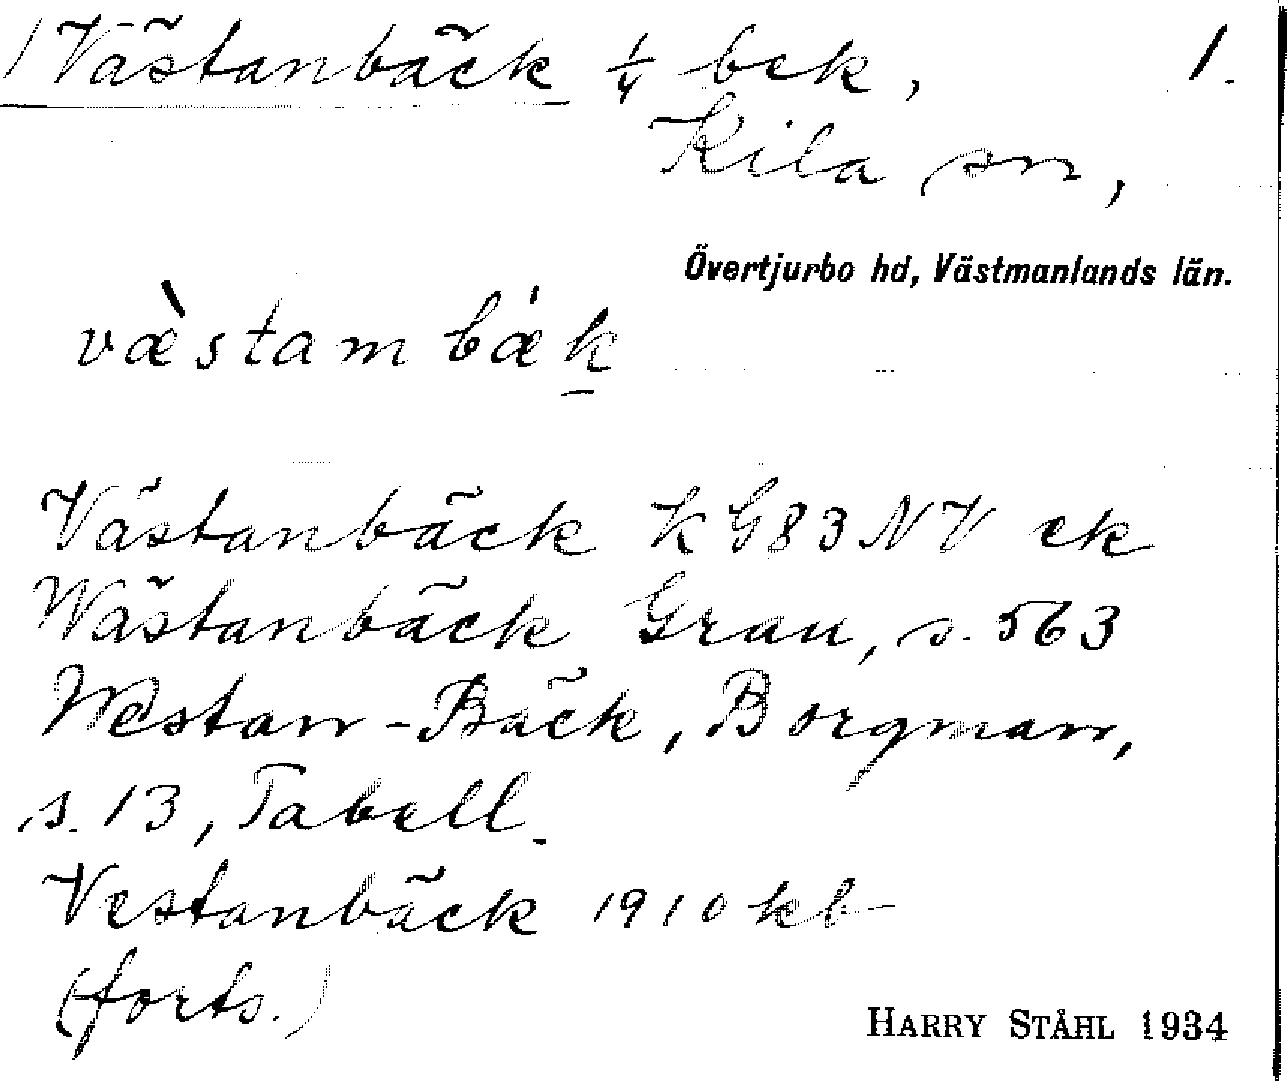 Västanbäck 1/4 bek, 1.
Kila sn,
Övertjurbo hd, Västmanlands län.
væ̀stambǽk
Västanbäck KG83NV ek
Wästanbäck Grau, s. 563
Westan-Bäck, Borgman,
s. 13, Tabell.
Vestanbäck 1910 kb
(forts.)
HARRY STÅHL 1934